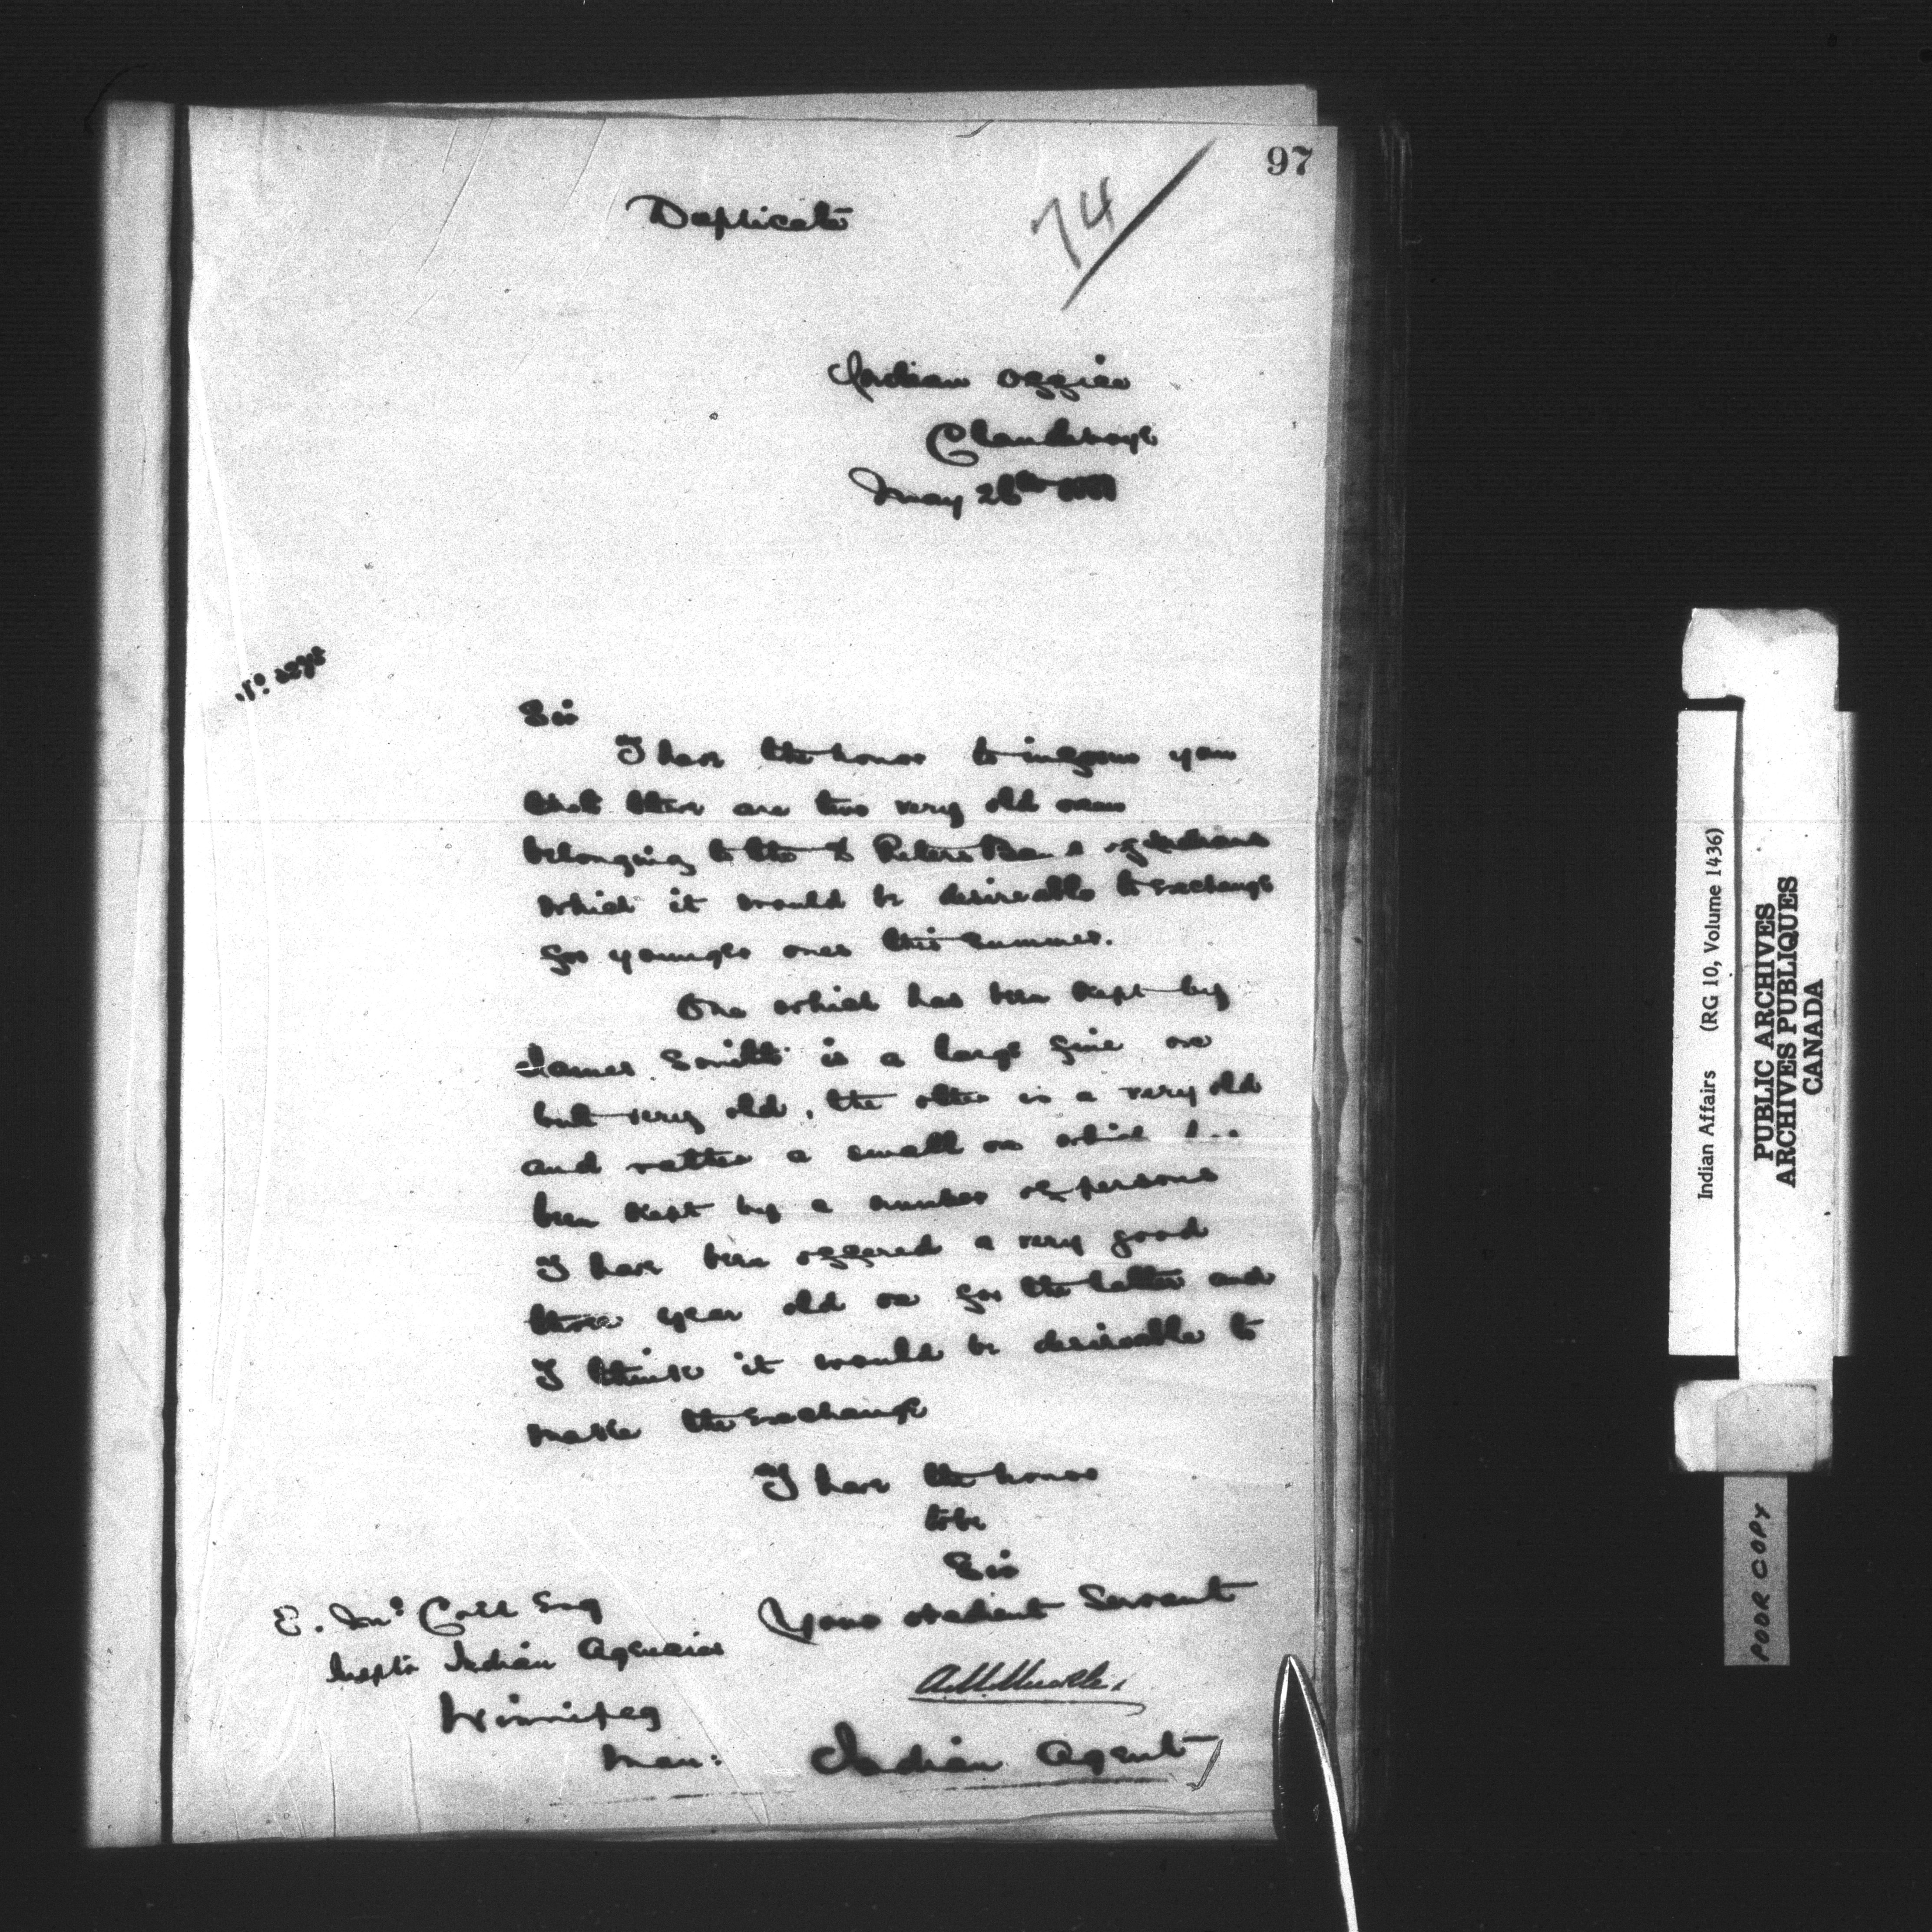 97
74
Duplicate
Indian Office
Clandeboye
May 26th
No.
Sir
I have the honor to inform you
that there are two very old oxen
belonging to the St Peters Band of Indians
which it would be desireable to exchange
for younger ones this summer.
One which has been kept by
James Smith is a large fine ox
but very old, the other is a very old
and rather a small ox which has
been kept by a number of persons
I have been offered a very good
three year old ox for the latter and
I think it would be desireable to
make the exchange
I have the honor
to be
Sir
Your obedient Servant
A.M. Muckle,
Indian Agent
E. McColl Esq
Insptr Indian Agencies
Winnipeg
Man:
Indian Affairs (RG 10, Volume 1436)
PUBLIC ARCHIVES
ARCHIVES PUBLIQUES
CANADA
POOR COPY